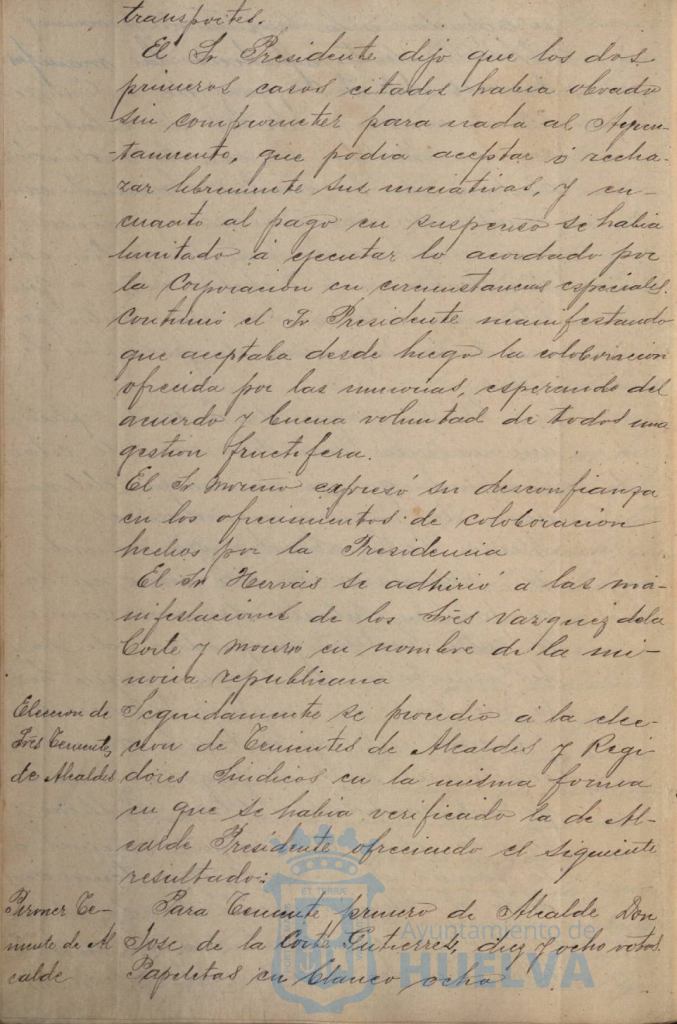 transportes.
El Sr Presidente dijo que los dos
primeros casos citados habia obrado
sin comprometer para nada al Ayun-
-tamiento, que podia aceptar ó recha-
zar libremente sus iniciativas, y en
cuanto al pago en suspenso se habia
limitado á ejecutar lo acordado por
la Corporacion en circunstancias especiales.
Continuó el Sr Presidente manifestando
que aceptaba desde luego la coloboracion
ofrecida por las minorias, esperando del
acuerdo y buena voluntad de todos una
gestion fructifera.
El Sr Moreno expresó su desconfianza
en los ofrecimientos de coloboracion
hechos por la Presidencia
El Sr Hervás se adhirió á las ma-
nifestaciones de los Srês Vazquez de la
Corte y Moreno en nombre de la mi-
noria republicana
Eleccion de
Srês Tenientes
de Alcaldes
Seguidamente se procedio á la elec-
cion de Tenientes de Alcaldes y Regi
dores Sindicos en la misma forma
en que se habia verificado la de Al-
calde Presidente ofreciendo el siguiente
resultado:
Primer Te-
niente de Al
calde
Para Teniente primero de Alcalde Don
Jose de la Corte Gutierres, diez y ocho votos.
Papeletas en blanco ocho
Ayuntamiento de
HUELVA